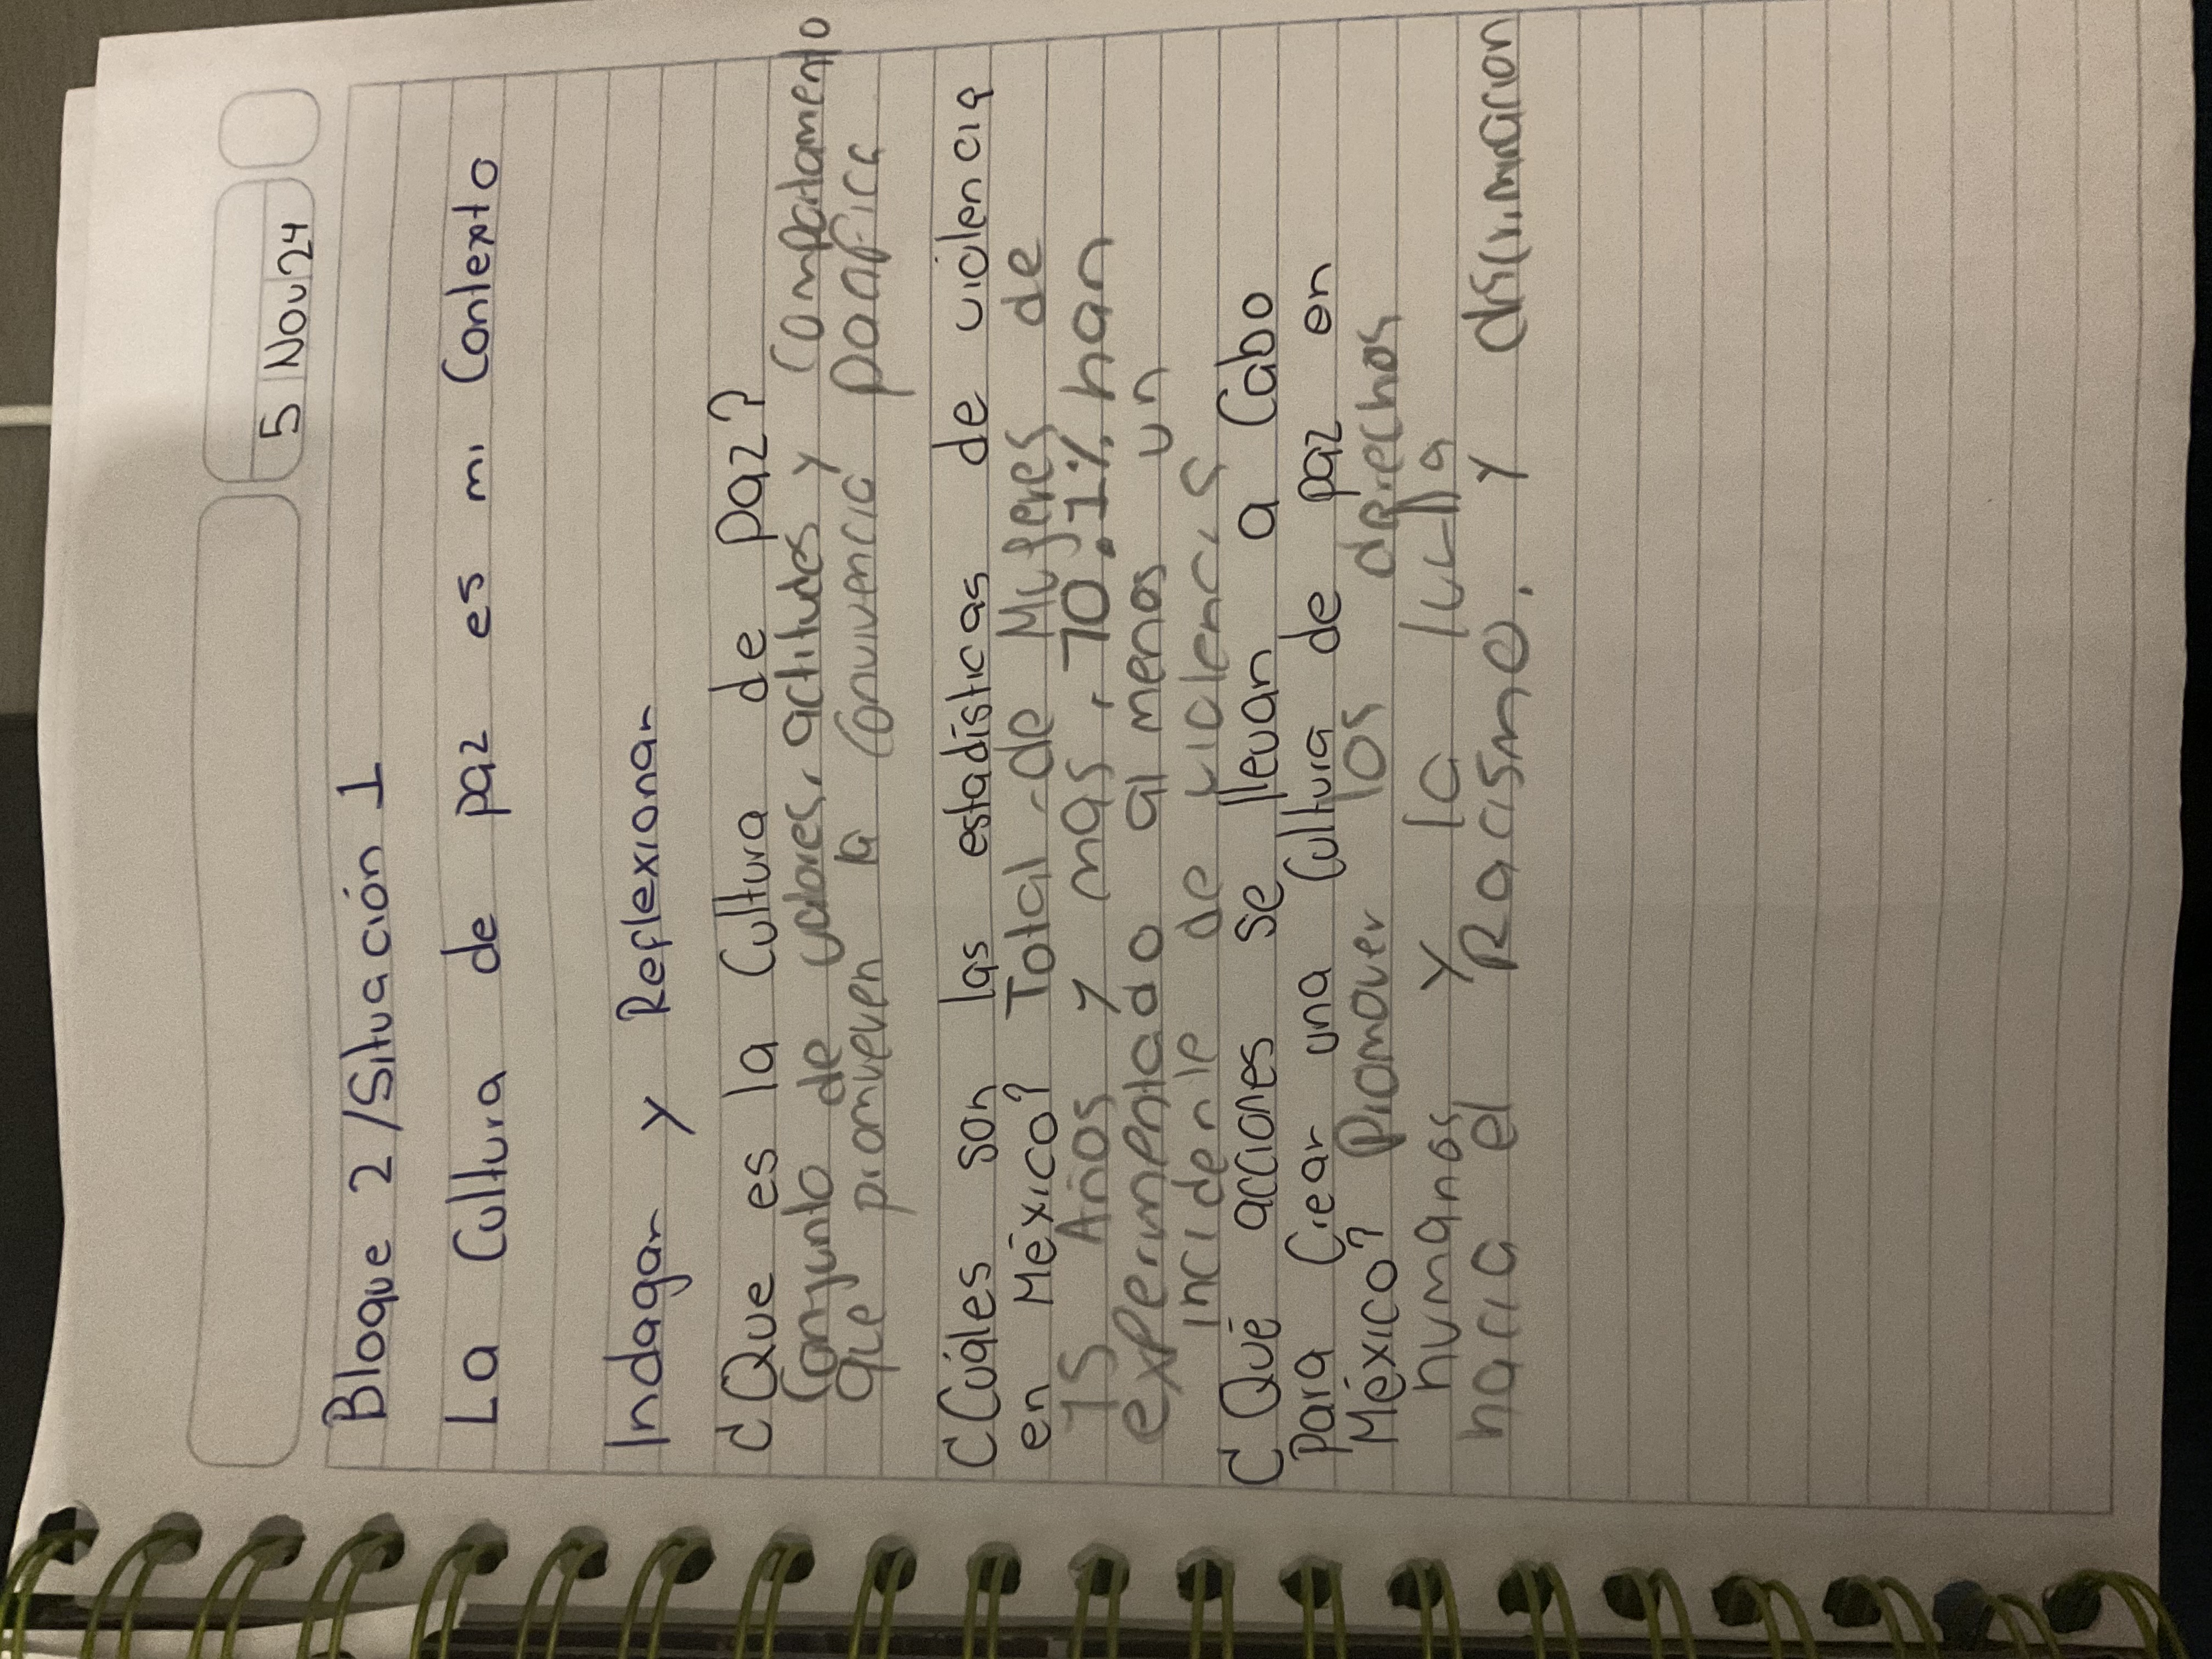 5 Nov 24
Bloque 2 / Situación 1
La Cultura de paz es mi Contexto
Indagar y Reflexionar
¿Que es la Cultura de paz?
Conjunto de valores, actitudes y Compartamento
que promveven la Convivencia pacifica
¿Cuáles son las estadísticas de violencia
en México? Total de Mugeres de
15 Años y mas, 70.1% han
experimentado al menos un
incidente de violencia
¿Qué acciones se llevan a Cabo
para Crear una Cultura de paz en
México? Promover los derechos
humanos y la lucha
hacia el Racismo. y discriminacion